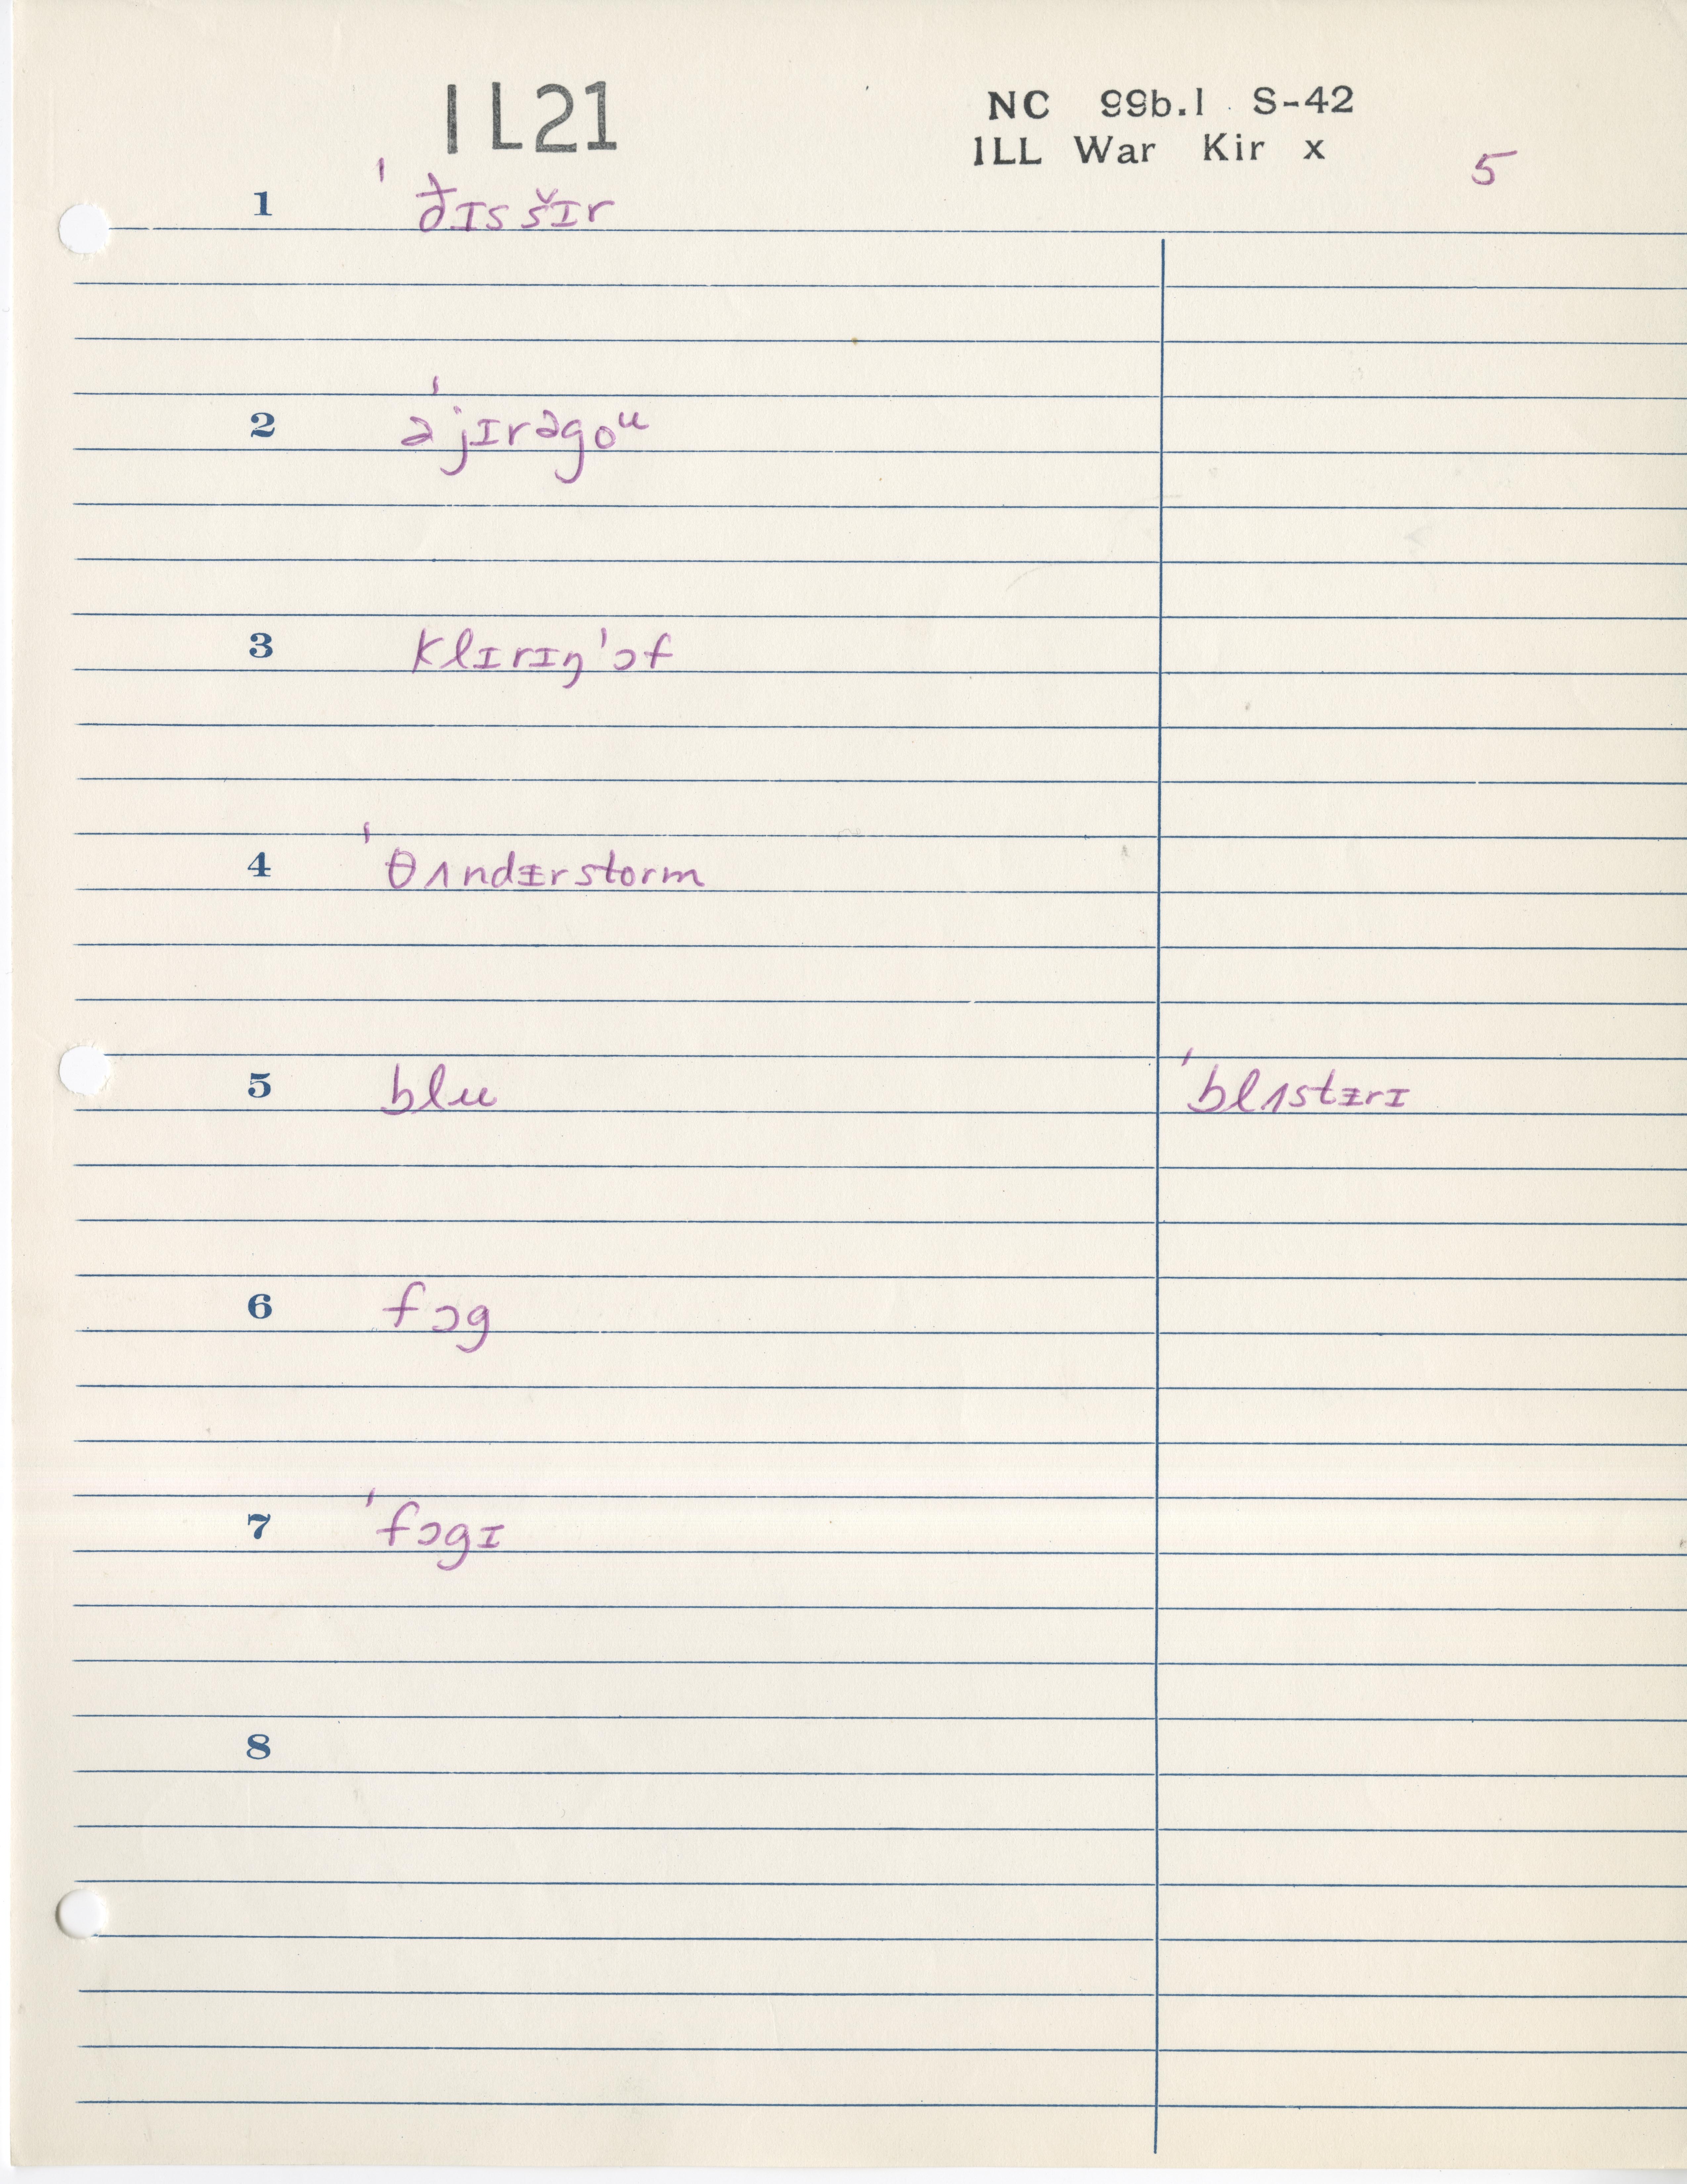 IL21
NC 99b.1 S-42
ILL War Kir x
5
1 ˈðɪsšɪr
2 əˈjɪrəgoᵘ
3 klɪrɪŋˈɔf
4 ˈθʌndɪ̵rstorm
5 blu ˈblʌstɪ̵rɪ
6 fɔg
7 ˈfɔgɪ
8